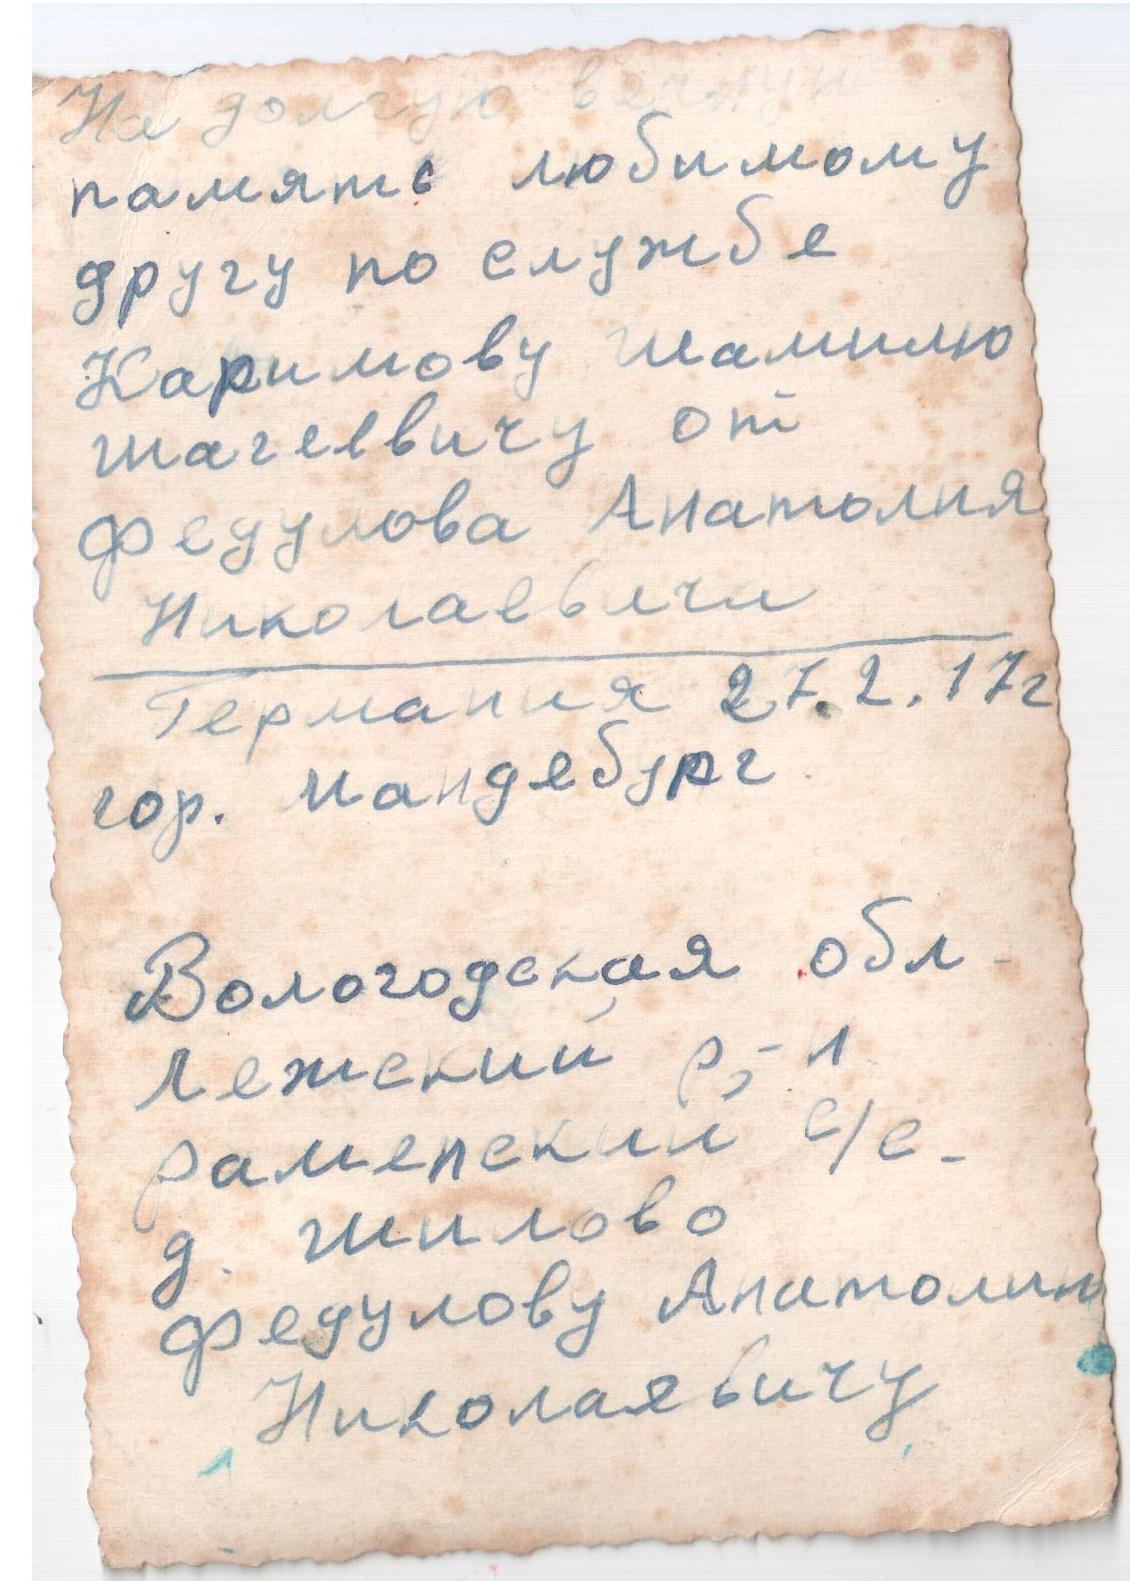 На долгую вечную
память любимому
другу по службе
Каримову Шамилю
Шагеевичу от
Федулова Анатолия
Николаевича
Германия 27.2.17г
гор. Мандебург
Вологодская обл-
Лежский р-н
Раменский с/с-
д. Шилово
Федулову Анатолию
Николаевичу